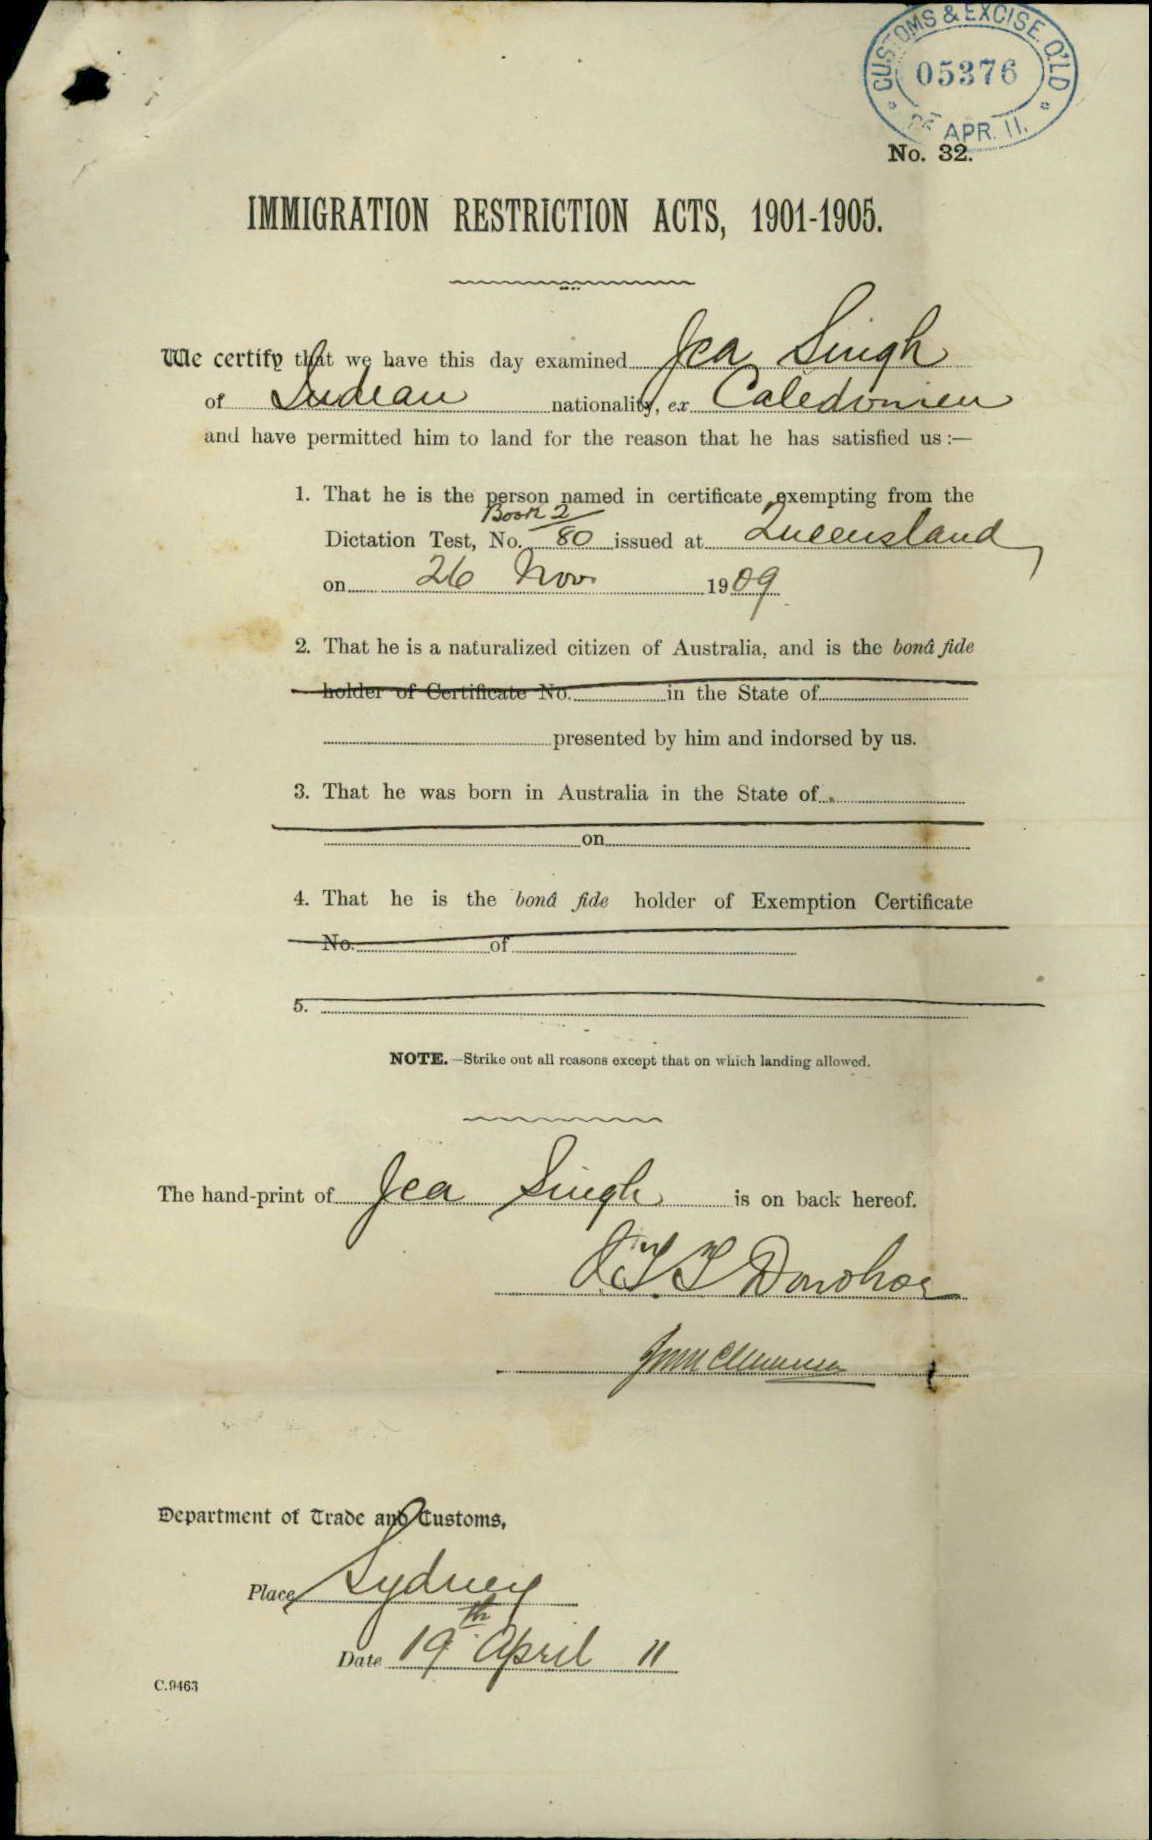 CUSTOMS & EXCISE. Q'LD
05376
APR. 11.
No. 32.
IMMIGRATION RESTRICTION ACTS, 1901-1905.
We certify that we have this day examined Jea Singh
of Indian nationality, ex Caledonien
and have permitted him to land for the reason that he has satisfied us :—
1. That he is the person named in certificate exempting from the
Book 2
Dictation Test, No. 80 issued at Queensland,
on 26 Nov 1909
2. That he is a naturalized citizen of Australia, and is the bonâ fide
holder of Certificate No. in the State of
presented by him and indorsed by us.
3. That he was born in Australia in the State of
on
4. That he is the bonâ fide holder of Exemption Certificate
No. of
5.
NOTE.—Strike out all reasons except that on which landing allowed.
The hand-print of Jea Singh is on back hereof.
Donohoe
Department of Trade and Customs,
Place Sydney
Date 19th April 11
C.9463